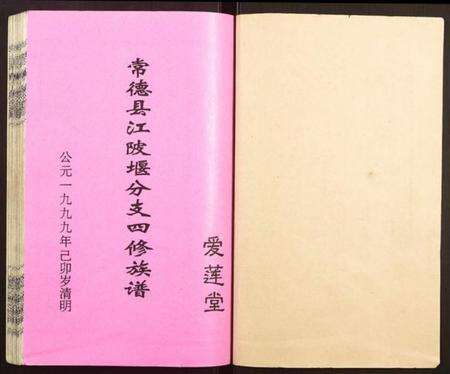 爱莲堂
常德县江陂堰分支四修族谱
公元一九九九年己卯岁清明